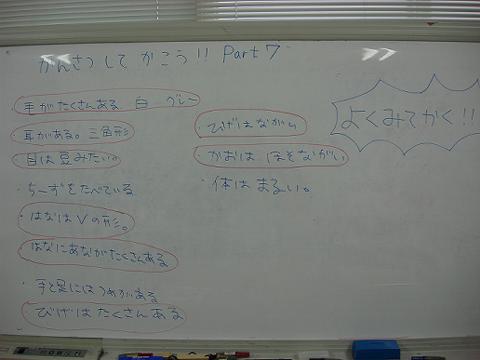 かんさつして かこう!! Part7
・毛がたくさんある 白 グレー
・耳がある。三角形
・目は豆みたい。
・ちーずをたべている
・はなはVの形。
はなにあながたくさんある
・手と足にはつめがある
ひげはたくさんある
・ひげはながい
・かおは ほそながい。
・体は まるい。
よくみてかく!!